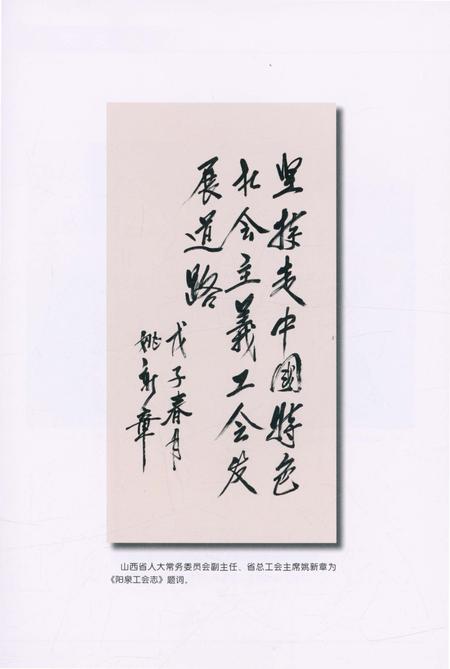 坚持走中國特色
社会主義工会发
展道路
戊子春月
姚新章
山西省人大常务委员会副主任、省总工会主席姚新章为
《阳泉工会志》题词。